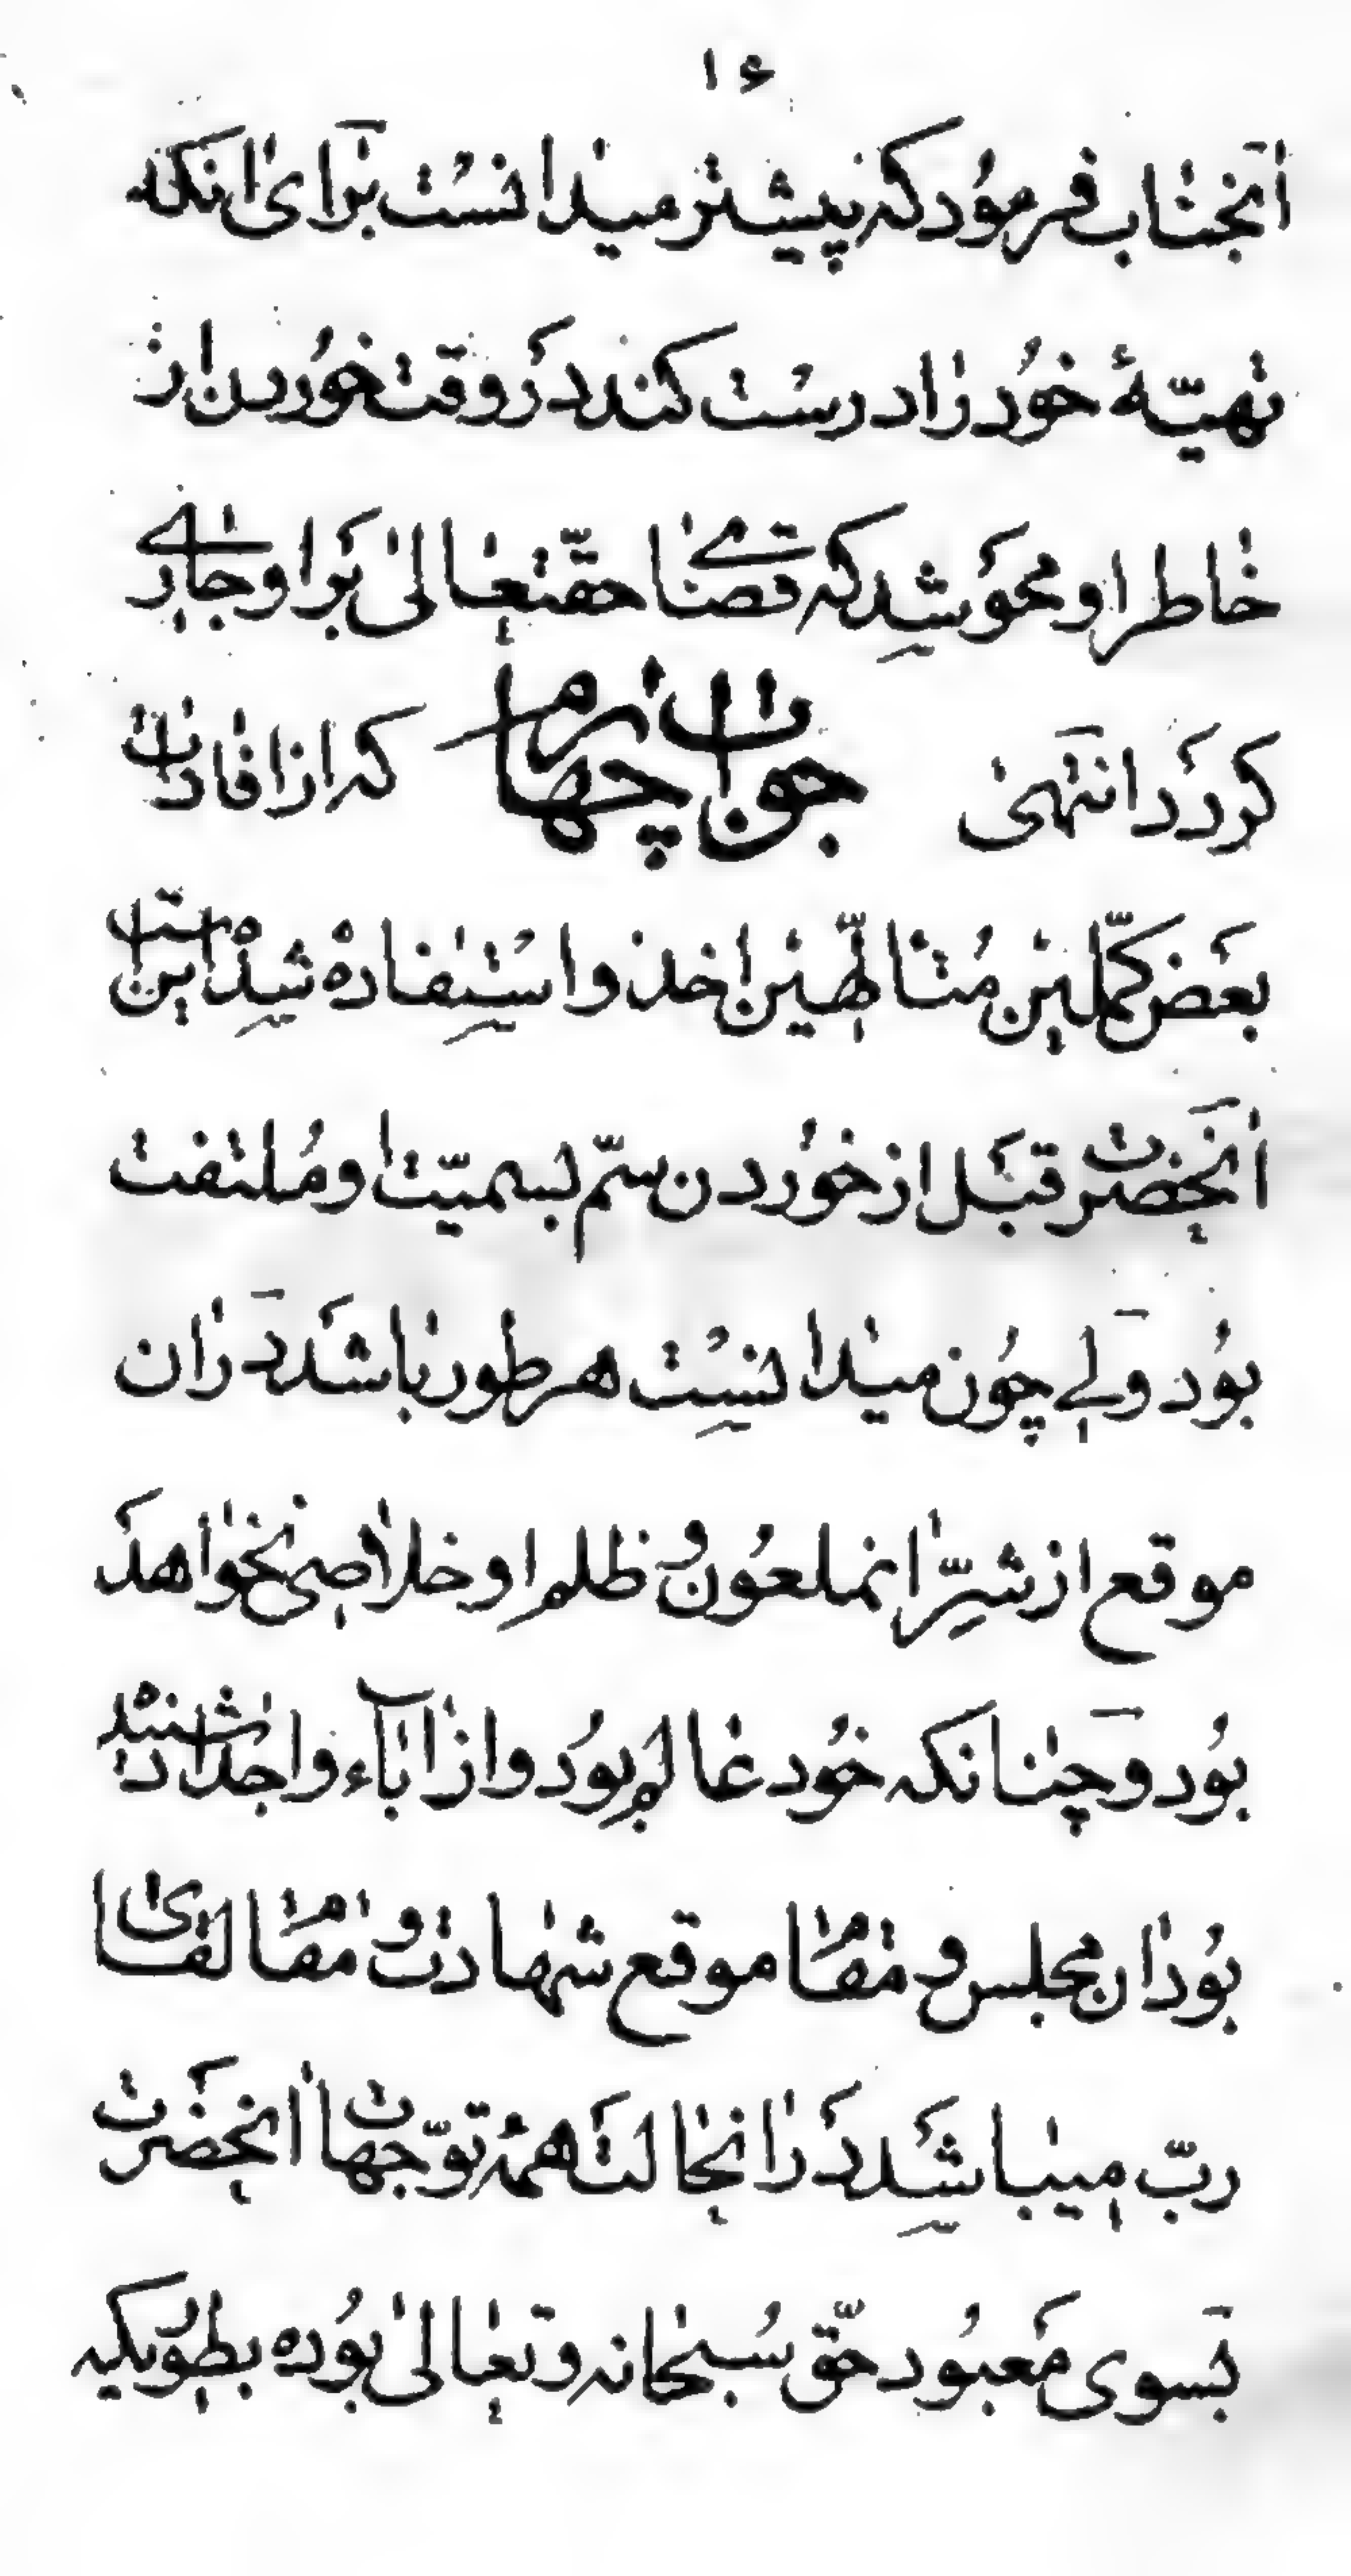 ۱۶
انجناب فرمود که پیشتر میدانست برای انکه
تهیّهٔ خود را درست کند در وقت خوردن از
خاطر او محو شد که تا قضای حقتعالی بر او جاری
کردد انتهی جواب چهارم که از افادات
بعض کمّلین متالّهین اخذ و استفاده شده است این
انحضرت قبل از خوردن سمّ بسمیّت او ملتفت
بود ولی چون میدانست هر طور باشد در ان
موقع از شرّ انملعون و ظلم او خلاصی نخواهد
بود و چنانکه خود عالم بود و از اباء و اجداد شنیده
بود ان مجلس و مقام موقع شهادت و مقام لقای
ربّ میباشد در انحالت همه توجّهات انحضرت
بسوی معبود حقّ سبحانه و تعالی بوده بطوریکه